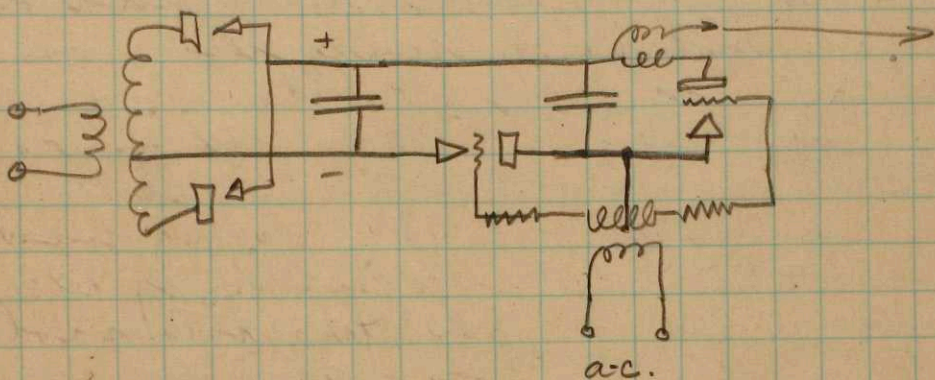 +
-
a-c.